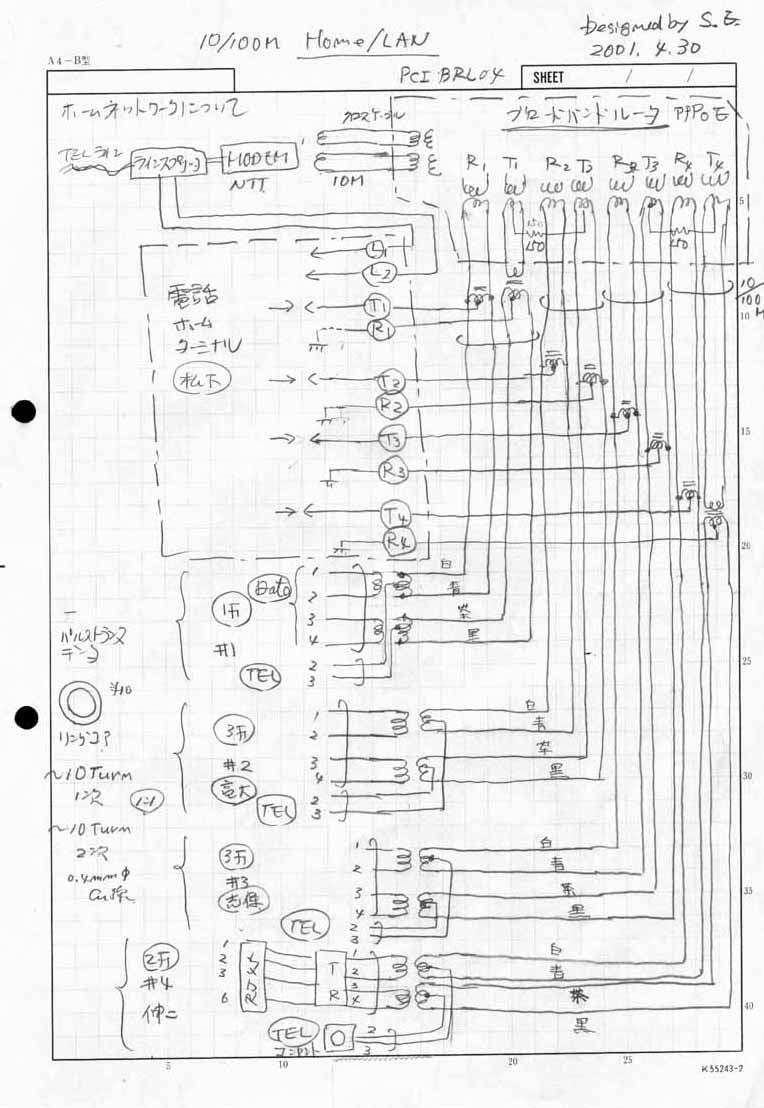 10/100M Home/LAN
Designed by S.E.
2001. 4.30
A4-B型
PCI BRL04
SHEET / /
ホームネットワークについて
クロスケーブル
ブロードバンドルータ PPPoE
TELライン
ラインスプリッタ
MODEM
NTT
10M
R1 T1 R2 T2 R3 T3 R4 T4
150
150
150
5
L1
L2
電話
ホーム
ターミナル
松下
T1
R1
T2
R2
T3
R3
T4
R4
10/100M
10
15
20
25
30
35
40
Data
1F
#1
1
2
3
4
TEL
2
3
白
青
茶
黒
パルストランス
リングコア
~10 Turn
1次
1:1
~10 Turn
2次
0.4mmφ
Cu線
3F
#2
1
2
3
4
TEL
2
3
白
青
茶
黒
3F
#3
志保
1
2
3
4
TEL
2
3
白
青
茶
黒
2F
#4
伸二
1
2
3
6
RJ
T
R
1
2
3
4
TEL
2
3
白
青
茶
黒
5 10 20 25
K55243-2